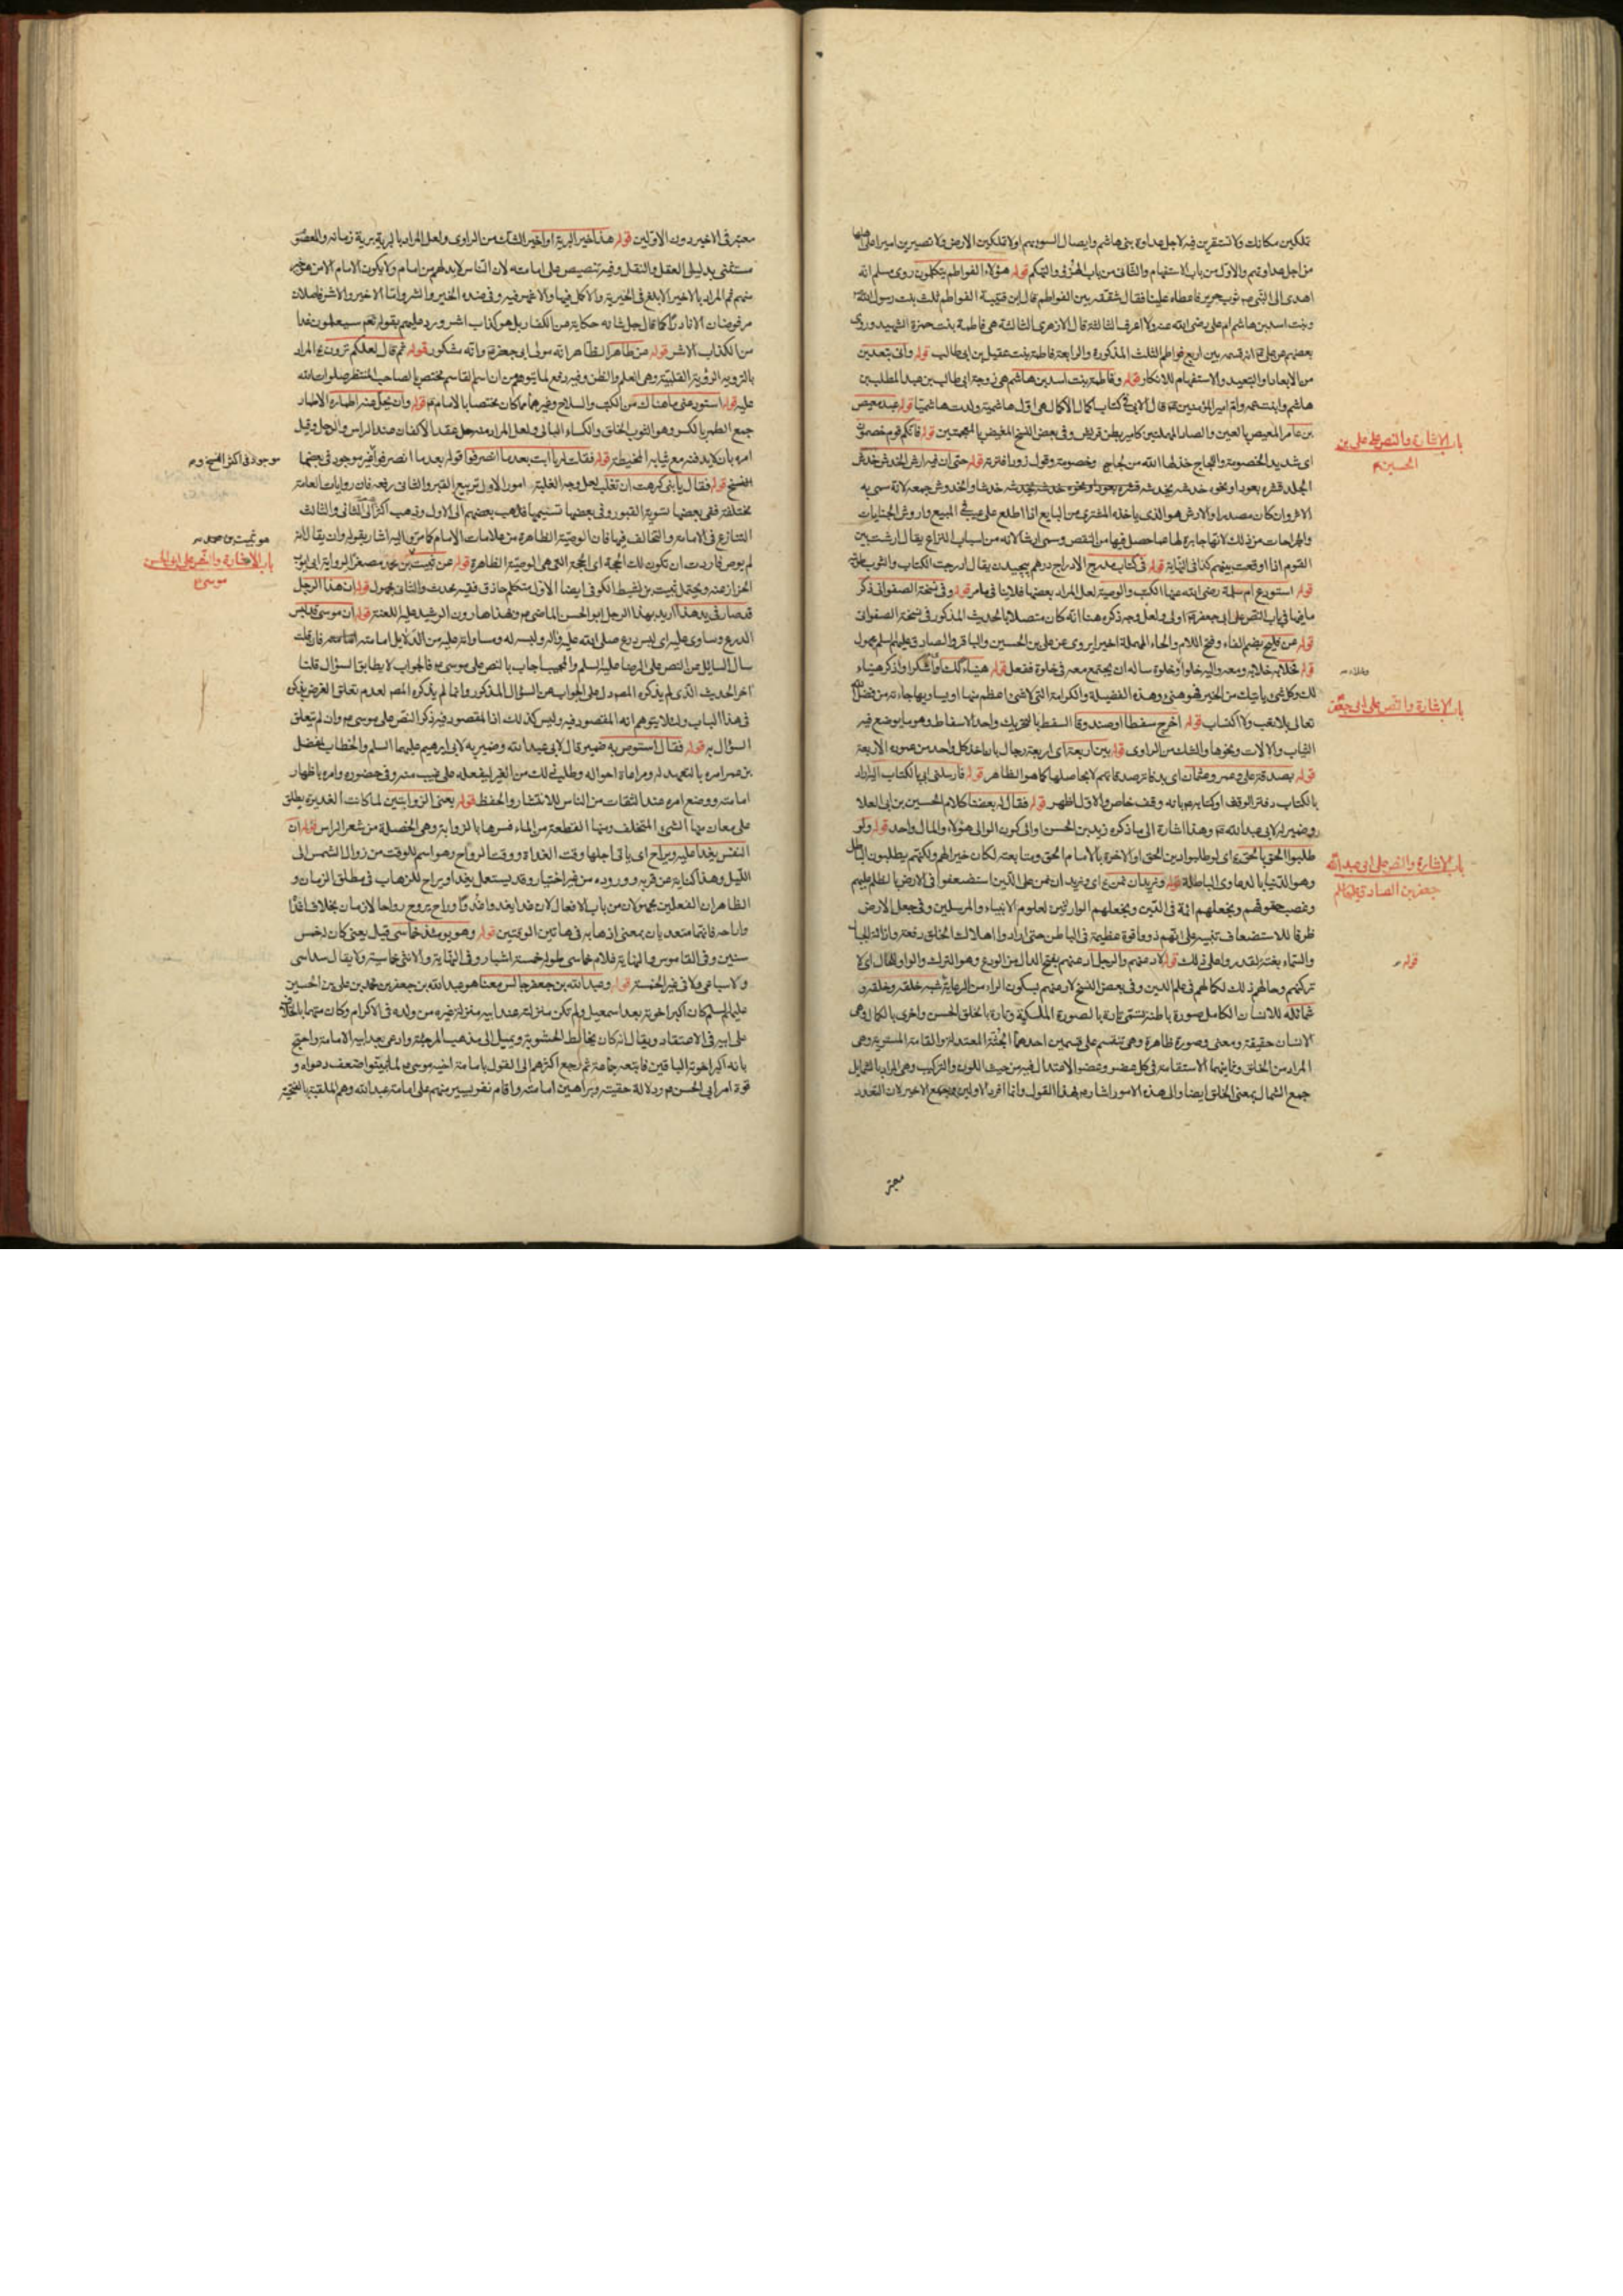 من اجل عداوتهم والاول من باب الاستفهام والثانى من باب الهزء والتهكم قوله هؤلاء الفواطم يتكلمون روى مسلم انه
اهدى الى النبى ص ثوب حرير فاعطاه عليا فقال شققه بين الفواطم قال ابن قتيبة الفواطم ثلث بنت رسول الله
وبنت اسد بن هاشم ام على رضى الله عنه ولا اعرف الثالثة قال الازهرى الثالثة هى فاطمة بنت حمزة الشهيد وروى
بعضهم عن على انه قسمه بين اربع فواطم الثلث المذكورة والرابعة فاطمة بنت عقيل بن ابى طالب قوله وانى يتعدين
من الابعاد او التبعيد والاستفهام للانكار قوله وفاطمة بنت اسد بن هاشم هى زوجة ابى طالب بن عبد المطلب بن
هاشم وابنت عمه وام امير المؤمنين قال الابى فى كتاب اكمال الاكمال هى اول هاشمية ولدت هاشميا قوله عبد معيص
بن عامر المعيص بالعين والصاد المهملتين كامير بطن قريش وفى بعض النسخ المغيض بالمعجمتين قوله فانكم قوم خصمون
اى شديد الخصومة واللجاج خذلها الله من لجاج وخصومة وقول زور افترته قوله حتى ان فيه ارش الخدش خدش
الجلد قشره بعود او نحوه خدشه يخدشه خدشا والخدوش جمعه لانه سمى به
الاثر وان كان مصدرا والارش هو الذى ياخذه المشترى من البايع اذا اطلع على عيب فى المبيع واروش الجنايات
والجراحات من ذلك لانها جابرة لها عما حصل فيها من النقص وسمى ارشا لانه من اسباب النزاع يقال ارشت بين
القوم اذا اوقعت بينهم كذا فى النهاية قوله فى كتاب مدرج الادراج درهم پيچيدن يقال ادرجت الكتاب والثوب طويته
قوله استودع ام سلمة رضى الله عنها الكتب والوصية لعل المراد بعضها فلا ينافى ما مر قوله وفى نسخة الصفوانى ذكر
ما فيها فى باب النص على ابى جعفر اولى ولعل وجه ذكره هنا انه كان متصلا بالحديث المذكور فى نسخة الصفوانى
قوله عن فليح بضم الفاء وفتح اللام والحاء المهملة اخيرا يروى عن على بن الحسين والباقر والصادق عليهم السلم مجهول
قوله فخلا به خلا به ومعه واليه خلوا وخلوة ساله ان يجتمع معه فى خلوة ففعل قوله هنيئا لك
لك وكل شئ ياتيك من الخير فهو هنئ وهذه الفضيلة والكرامة التى لا شئ اعظم منها او يساويها جاءته من فضل الله
تعالى بلا تعب ولا اكتساب قوله اخرج سفطا او صندوقا السفط بالتحريك واحد الاسفاط وهو ما يوضع فيه
الثياب والالات ونحوها والشك من الراوى قوله بين اربعة اى اربعة رجال بان اخذ كل واحد من عموده الاربعة
قوله بصدقة على وعمر وعثمان اى بدفاتر صدقاتهم لا بحاصلها كما هو الظاهر قوله فارسلنى ابى بالكتاب اليه اراد
بالكتاب دفتر الوقف او كتابه عربانه وقف خاص والاول اظهر قوله فقال له بعضنا كلام الحسين بن ابى العلا
وضمير له لابى عبد الله وهذا اشارة الى ما ذكره زيد بن الحسن او الى كون الوالى هؤلاء والمال واحد قوله ولو
طلبوا الحق بالحق اى لو طلبوا دين الحق او الاخرة بالامام الحق ومتابعته لكان خيرا لهم ولكنهم يطلبون الباطل
وهو الدنيا بالدعاوى الباطلة قوله ونريد ان نمن اى ونريد ان نمن على الذين استضعفوا فى الارض بالظلم عليهم
وغصب حقوقهم ونجعلهم ائمة فى الدين ونجعلهم الوارثين لعلوم الانبياء والمرسلين وفى جعل الارض
ظرفا للاستضعاف تنبيه على انهم ذووا قوة عظيمة فى الباطن حتى ارادوا اهلاك الخلق دفعة وازالة الجبال
والسماء بغتة لقدروا على ذلك
تركتهم وحالهم ذلك لكمالهم فى علم الدين وفى بعض النسخ
شمائله للانسان الكامل صورة باطنة تسمى تارة بالصورة الملكية وتارة بالخلق الحسن واخرى بالكمال وهى
الانسان حقيقة ومعنى وصورة ظاهرة وهى تنقسم على قسمين احدهما الجثة المعتدلة والقامة المستوية وهى
المراد من الخلق وغايتها الاستقامة فى كل عضو وعضو الاعتدال فيه من حيث اللون والتركيب وهى المراد بالشمايل
جمع الشمال بمعنى الخلق ايضا والى هذه الامور اشاره بهذا القول وانما افرد الاولين وجمع الاخير لان التعدد
معتبر
باب الاشارة والنص على على بن
الحسين
باب الاشارة والنص على ابى جعفر
باب الاشارة والنص على ابى عبد الله
جعفر بن الصادق عليهما السلم
قوله
معتبر فى الاخير دون الاولين قوله هذا خير البرية او اخير الشك من الراوى ولعل المراد بالبرية برية زمانه والمعصوم
مستثنى بدليل العقل والنقل وفيه تنصيص على امامته لان الناس لا بد لهم من امام ولا يكون الامام الا من هو خير
منهم ثم المراد بالاخير الابلغ فى الخيرية والاكمل فيها ولا غبر فيه وفى ضده الخير والشر واما الاخير والاشر فاصلان
مرفوضان الا نادرا كما قال جل شانه حكاية عن الكفار بل هو كذاب اشر ورد عليهم بقوله نعم سيعلمون غدا
من الكذاب الاشر قوله عن طاهر الظاهر انه مولى ابى جعفر وانه مشكور قوله ثم قال لعلكم ترون اه المراد
بالرؤية الرؤية القلبية وهى العلم والظن وفيه دفع لما يتوهم من ان اسم القاسم مختص بالصاحب المنتظر صلوات الله
عليه قوله استودعنى ما هناك من الكتب والسلاح وغيرهما مما كان مختصا بالامام قوله وان يحل عنه اطماره الاطمار
جمع الطمر بالكسر وهو الثوب الخلق والكساء البالى ولعل المراد منه حل عقد الاكفان عند الراس والرجل وقيل
امره بان لا يدفنه مع ثيابه المخيطة قوله فقلت له يا ابت بعد ما انصرفوا قوله بعد ما انصرفوا غير موجود فى بعضها
النسخ قوله فقال يا بنى كرهت ان تغلب لعل وجه الغلبة امور الاول تربيع القبر والثانى رفعه فان روايات العامة
مختلفة ففى بعضها تسوية القبور وفى بعضها تسنيمها فذهب بعضهم الى الاول وذهب اكثرهم الى الثانى والثالث
التنازع فى الامامة والتخالف فيها فان الوصية الظاهرة من علامات الامام كما مر واليه اشار بقوله وان يقال انه
لم يوص فاردت ان تكون لك الحجة اى الحجة التى هى الوصية الظاهرة قوله عن ثبيت مصغرا
الخراز عنه ويحتمل ثبيت بن نشيط الكوفى ايضا الاول متكلم حاذق فقيه محدث والثانى مجهول قوله ان هذا الرجل
قد صار فى يد هذا اريد بهذا الرجل ابو الحسن الماضى وبهذا هارون الرشيد عليه اللعنة قوله ان موسى قد لبس
الدرع وساوى عليه اى لبس درع صلى الله عليه واله ولبسه له ومساواته عليه من الدلايل امامته فان قلت
سال السائل عن النص على الرضا عليه السلم والمجيب اجاب بالنص على موسى فالجواب لا يطابق السؤال قلنا
اخر الحديث الذى لم يذكره المص يدل على الجواب عن السؤال المذكور وانما لم يذكره المص لعدم تعلق الغرض بذكره
فى هذا الباب ولئلا يتوهم انه المقصود فيه وليس كذلك اذا المقصود فيه ذكر النص على موسى وان لم يتعلق
السؤال به قوله فقال استوص به ضمير قال لابى عبد الله وضمير به لابى ابرهيم عليهما السلم والخطاب لمفضل
بن عمر امره بالتعهد له ومراعاة احواله وطلب ذلك من الغير ليفعله على غيب منه وفى حضوره وامره باظهار
امامته ووضع امره عند الثقات من الناس للانتشار والحفظ قوله يعنى الذوابتين لما كانت الغديرة يطلق
على معان منها الشئ المتخلف ومنها القطعة من الماء فسرها بالذوابة وهى الخصلة من شعر الراس قوله ان
النفس يغدا عليه ويراح اى ياتى اجلها وقت الغداة ووقت الرواح وهو اسم للوقت من زوال الشمس الى
الليل وهذا كناية عن قربه ووروده من غير اختيار وقد يستعمل يغدا ويراح للذهاب فى مطلق الزمان و
الظاهر ان الفعلين مجهولان من باب الافعال لان غدا يغدو غدوا وراح يروح رواحا لازمان بخلاف اغدا
واراحه فانهما متعديان بمعنى اذهابه فى هاتين الوقتين قوله وهو يومئذ خماسى قيل يعنى كان له خمس
سنين وفى القاموس والنهاية غلام خماسى طوله خمسة اشبار وفى النهاية والانثى خماسية ولا يقال سداسى
ولا سباعى ولا فى غير الخمسة قوله وعبد الله بن جعفر جالس معنا هو عبد الله بن جعفر بن محمد بن على بن الحسين
عليهم السلم كان اكبر اخوته بعد اسمعيل ولم تكن منزلته عند ابيه منزلة غيره من ولده فى الاكرام وكان متهما بالخلاف
على ابيه فى الاعتقاد ويقال انه كان يخالط الحشوية ويميل الى مذهب المرجئة وادعى بعد ابيه الامامة واحتج
بانه اكبر اخوته الباقين فاتبعه جماعة ثم رجع اكثرهم الى القول بامامة اخيه موسى لما تبينوا ضعف دعواه و
قوة امر ابى الحسن ودلالة حقيته وبراهين امامته واقام نفر يسير منهم على امامة عبد الله وهم الملقبة بالفطحية
موجود فى اكثر النسخ
هو ثبيت بن محمد
باب الاشارة والنص على ابى الحسن
موسى